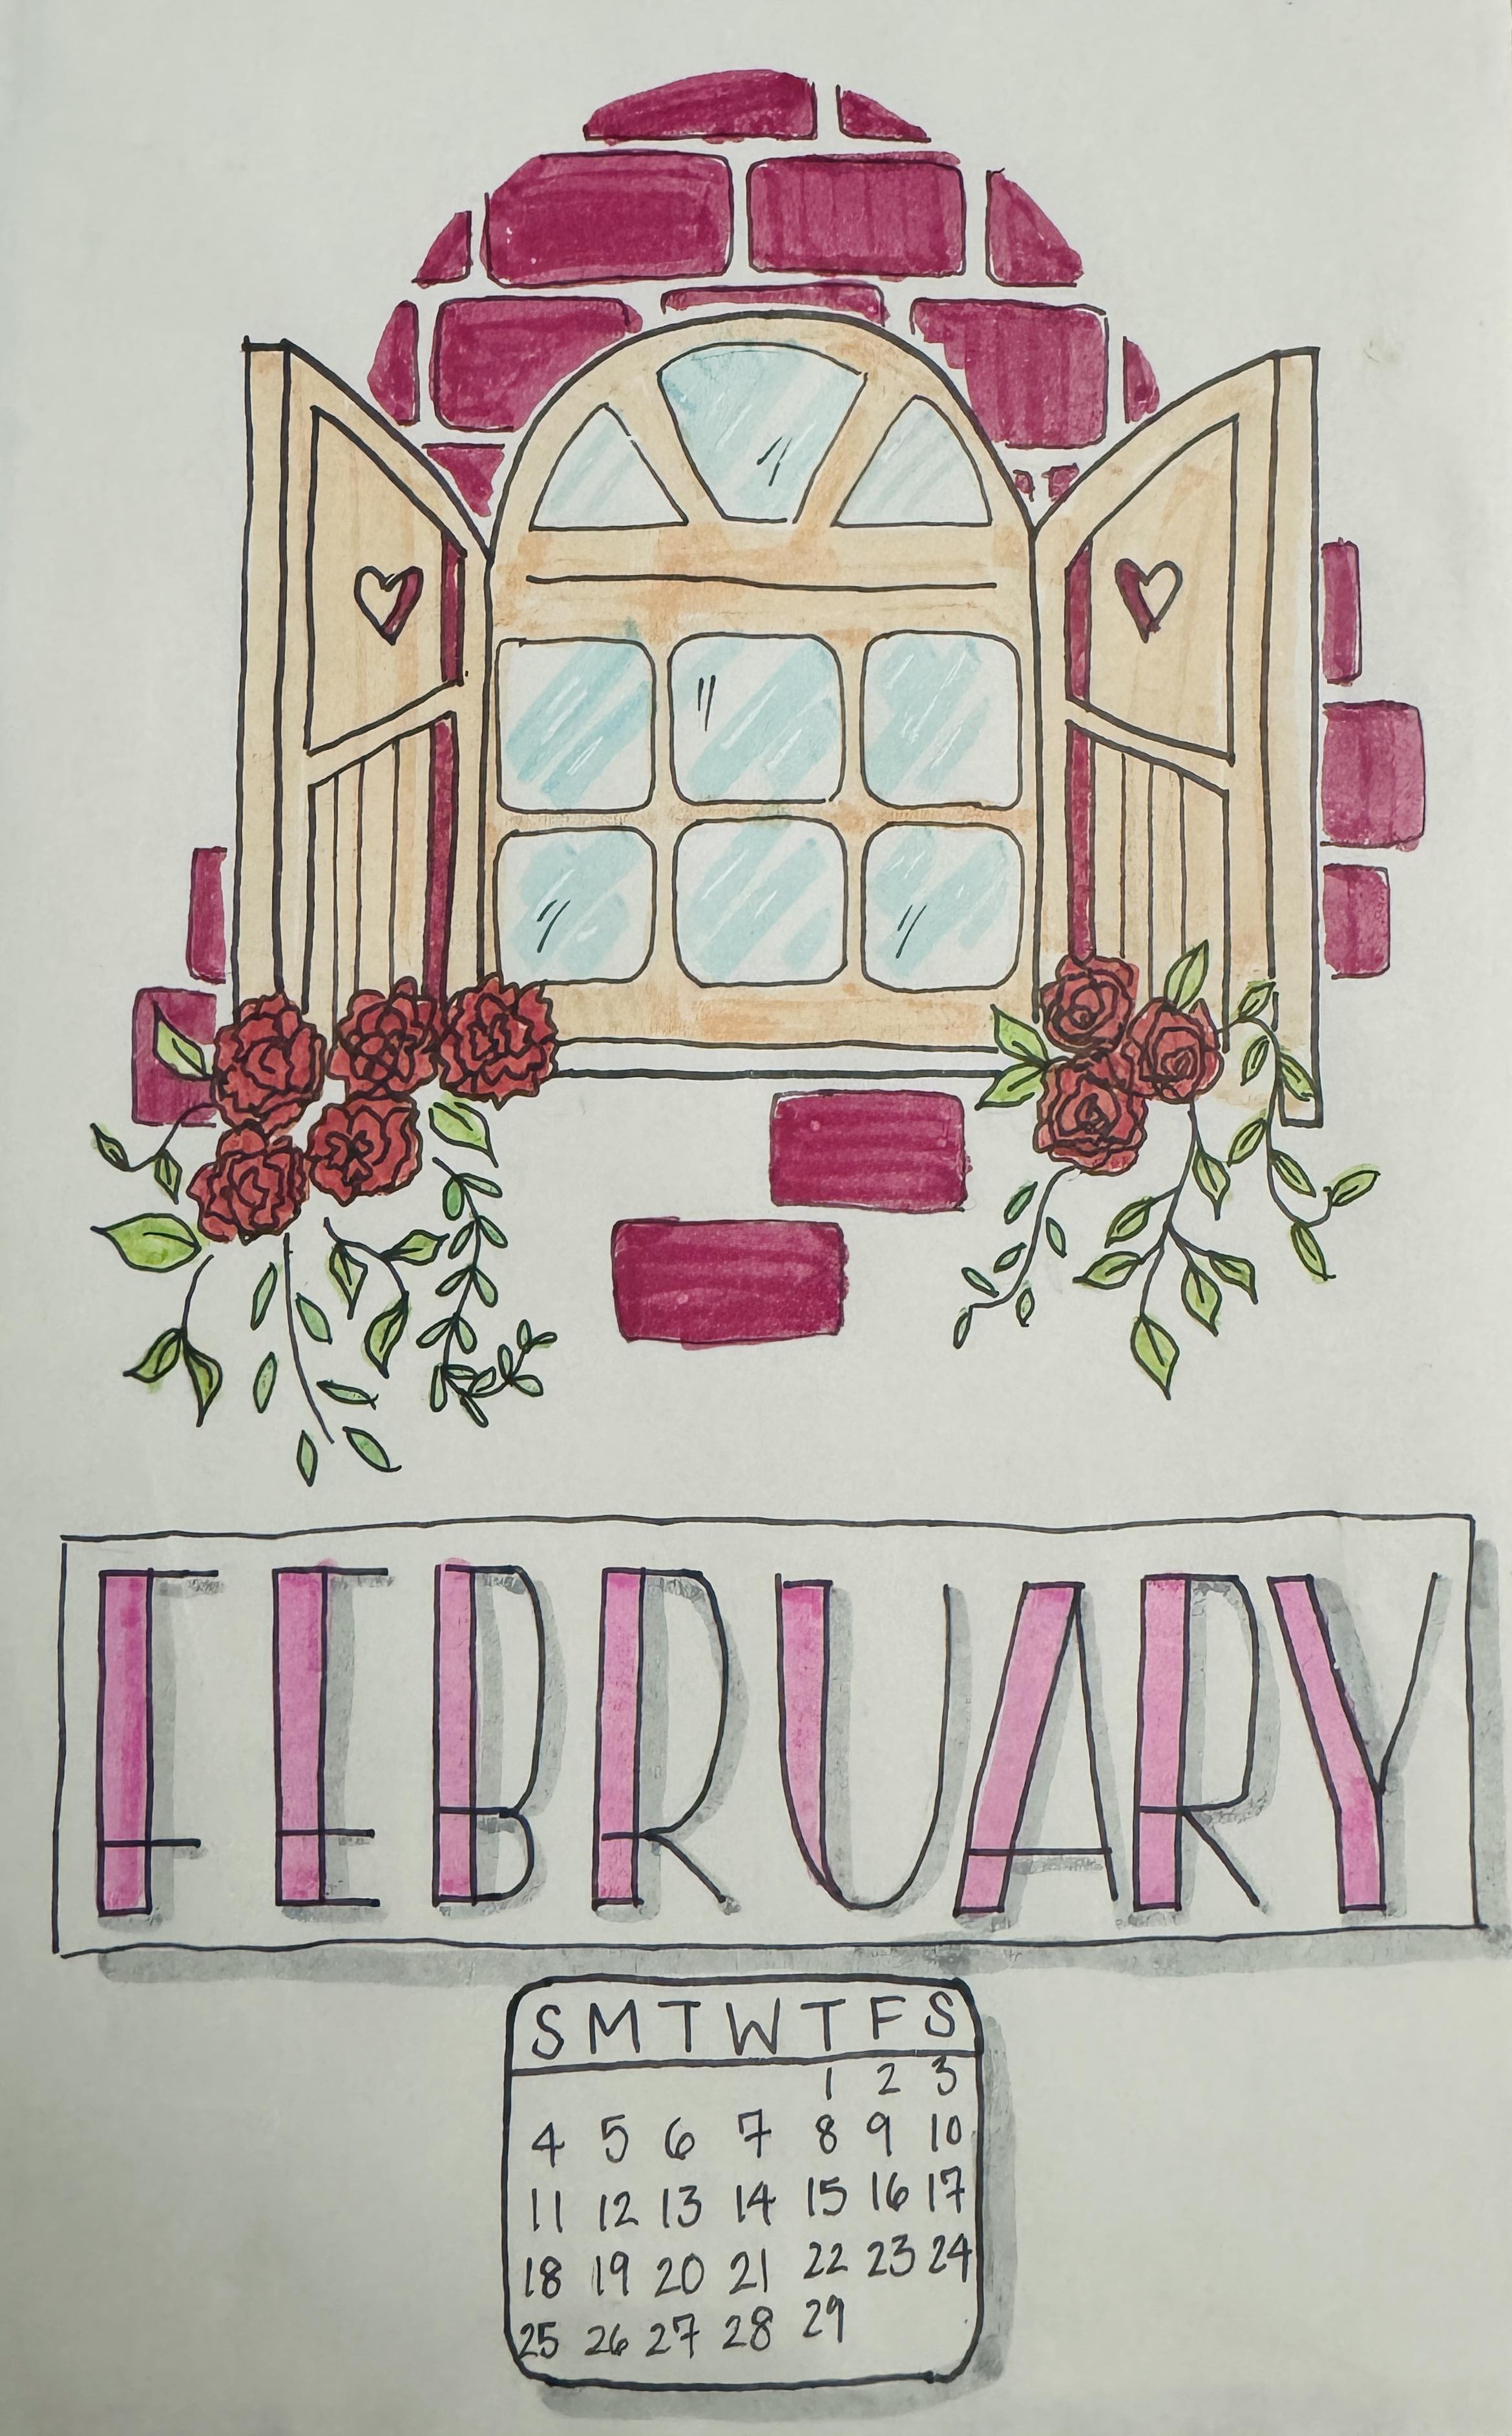 FEBRUARY
S M T W T F S
1 2 3
4 5 6 7 8 9 10
11 12 13 14 15 16 17
18 19 20 21 22 23 24
25 26 27 28 29